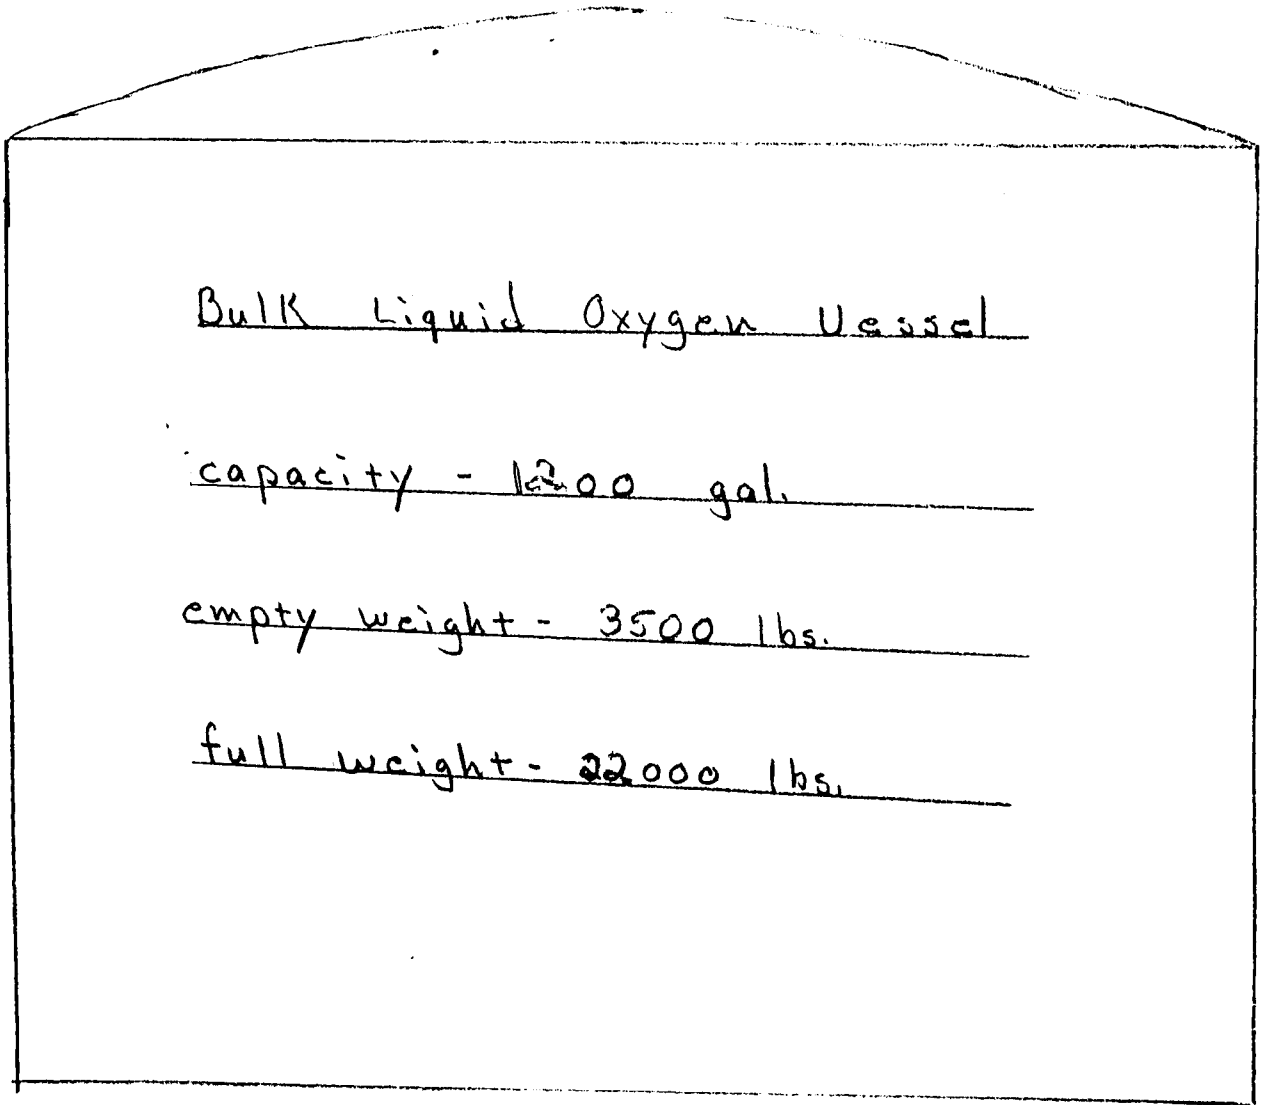 Bulk Liquid Oxygen Vessel
capacity - 1200 gal.
empty weight - 3500 lbs.
full weight - 22000 lbs.